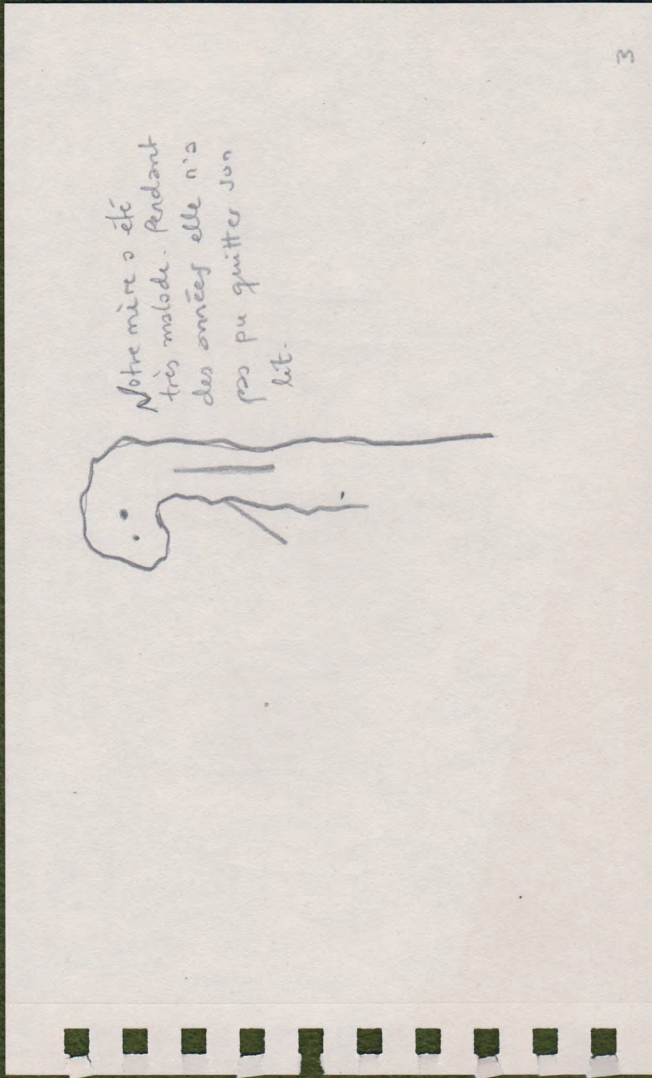 Notre mère a été
très malade. Pendant
des années elle n'a
pas pu quitter son
lit.
3